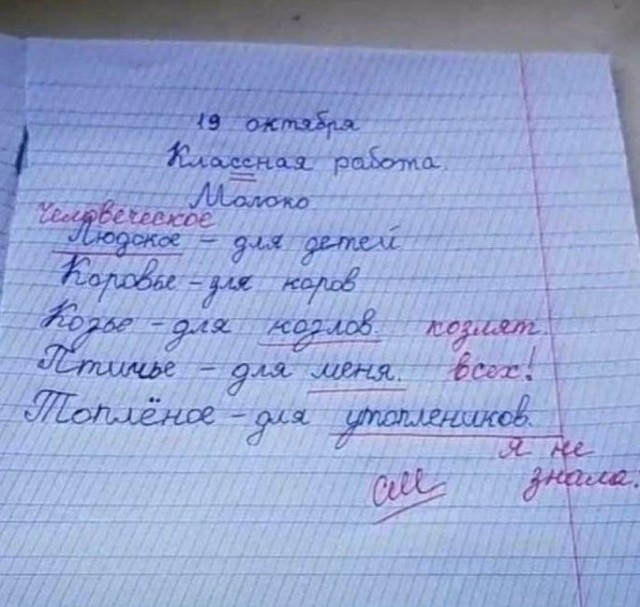 19 октября
Классная работа.
Молоко
Человеческое
Людское - для детей
Коровье - для коров
Козье - для козлов. козлят.
Птичье - для меня. всех!
Топлёное - для утоплеников.
я не
знала.
см